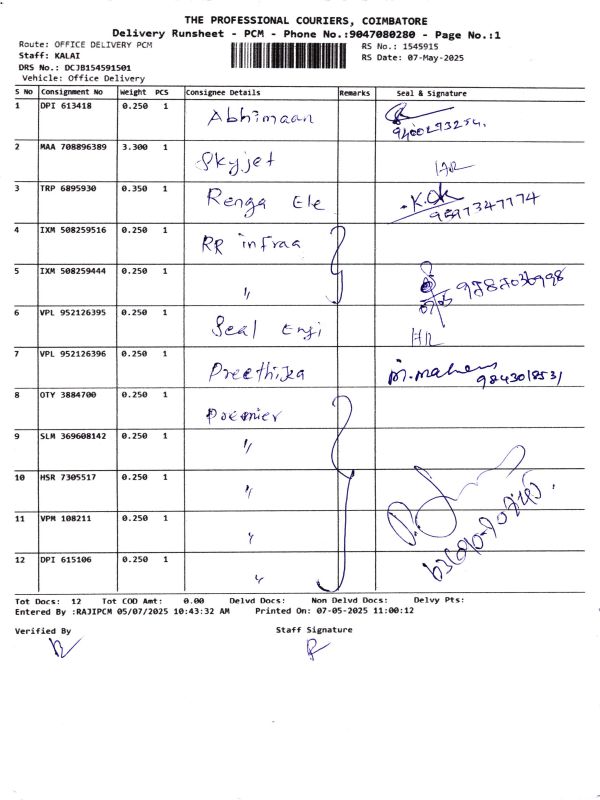 THE PROFESSIONAL COURIERS, COIMBATORE
Delivery Runsheet - PCM - Phone No.:9047080280 - Page No.:1
Route: OFFICE DELIVERY PCM
RS No.: 1545915
Staff: KALAI
RS Date: 07-May-2025
DRS No.: DCJB154591501
Vehicle: Office Delivery
S No Consignment No Weight PCS Consignee Details Remarks Seal & Signature
1 DPI 613418 0.250 1 Abhimaan
2 MAA 708896389 3.300 1 Skyjet
3 TRP 6895930 0.350 1 Renga Ele
4 IXM 508259516 0.250 1 RR infraa
5 IXM 508259444 0.250 1 "
6 VPL 952126395 0.250 1 Seal Engi
7 VPL 952126396 0.250 1 Preethika 9843018531
8 OTY 3884700 0.250 1 Premier
9 SLM 369608142 0.250 1 "
10 HSR 7305517 0.250 1 "
11 VPM 108211 0.250 1 "
12 DPI 615106 0.250 1 "
Tot Docs: 12 Tot COD Amt: 0.00 Delvd Docs: Non Delvd Docs: Delvy Pts:
Entered By :RAJIPCM 05/07/2025 10:43:32 AM Printed On: 07-05-2025 11:00:12
Verified By Staff Signature